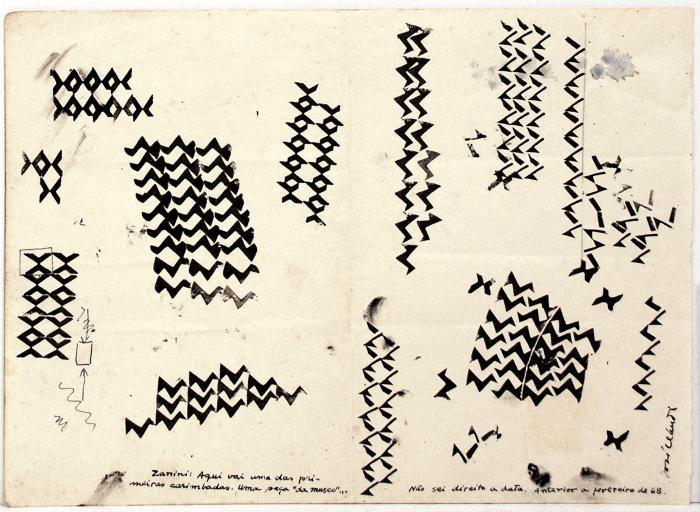 Zanini: Aqui vai uma das pri-
meiras carimbadas. Uma peça "da museo"...
Não sei direito a data. Anterior a fevereiro de 68.